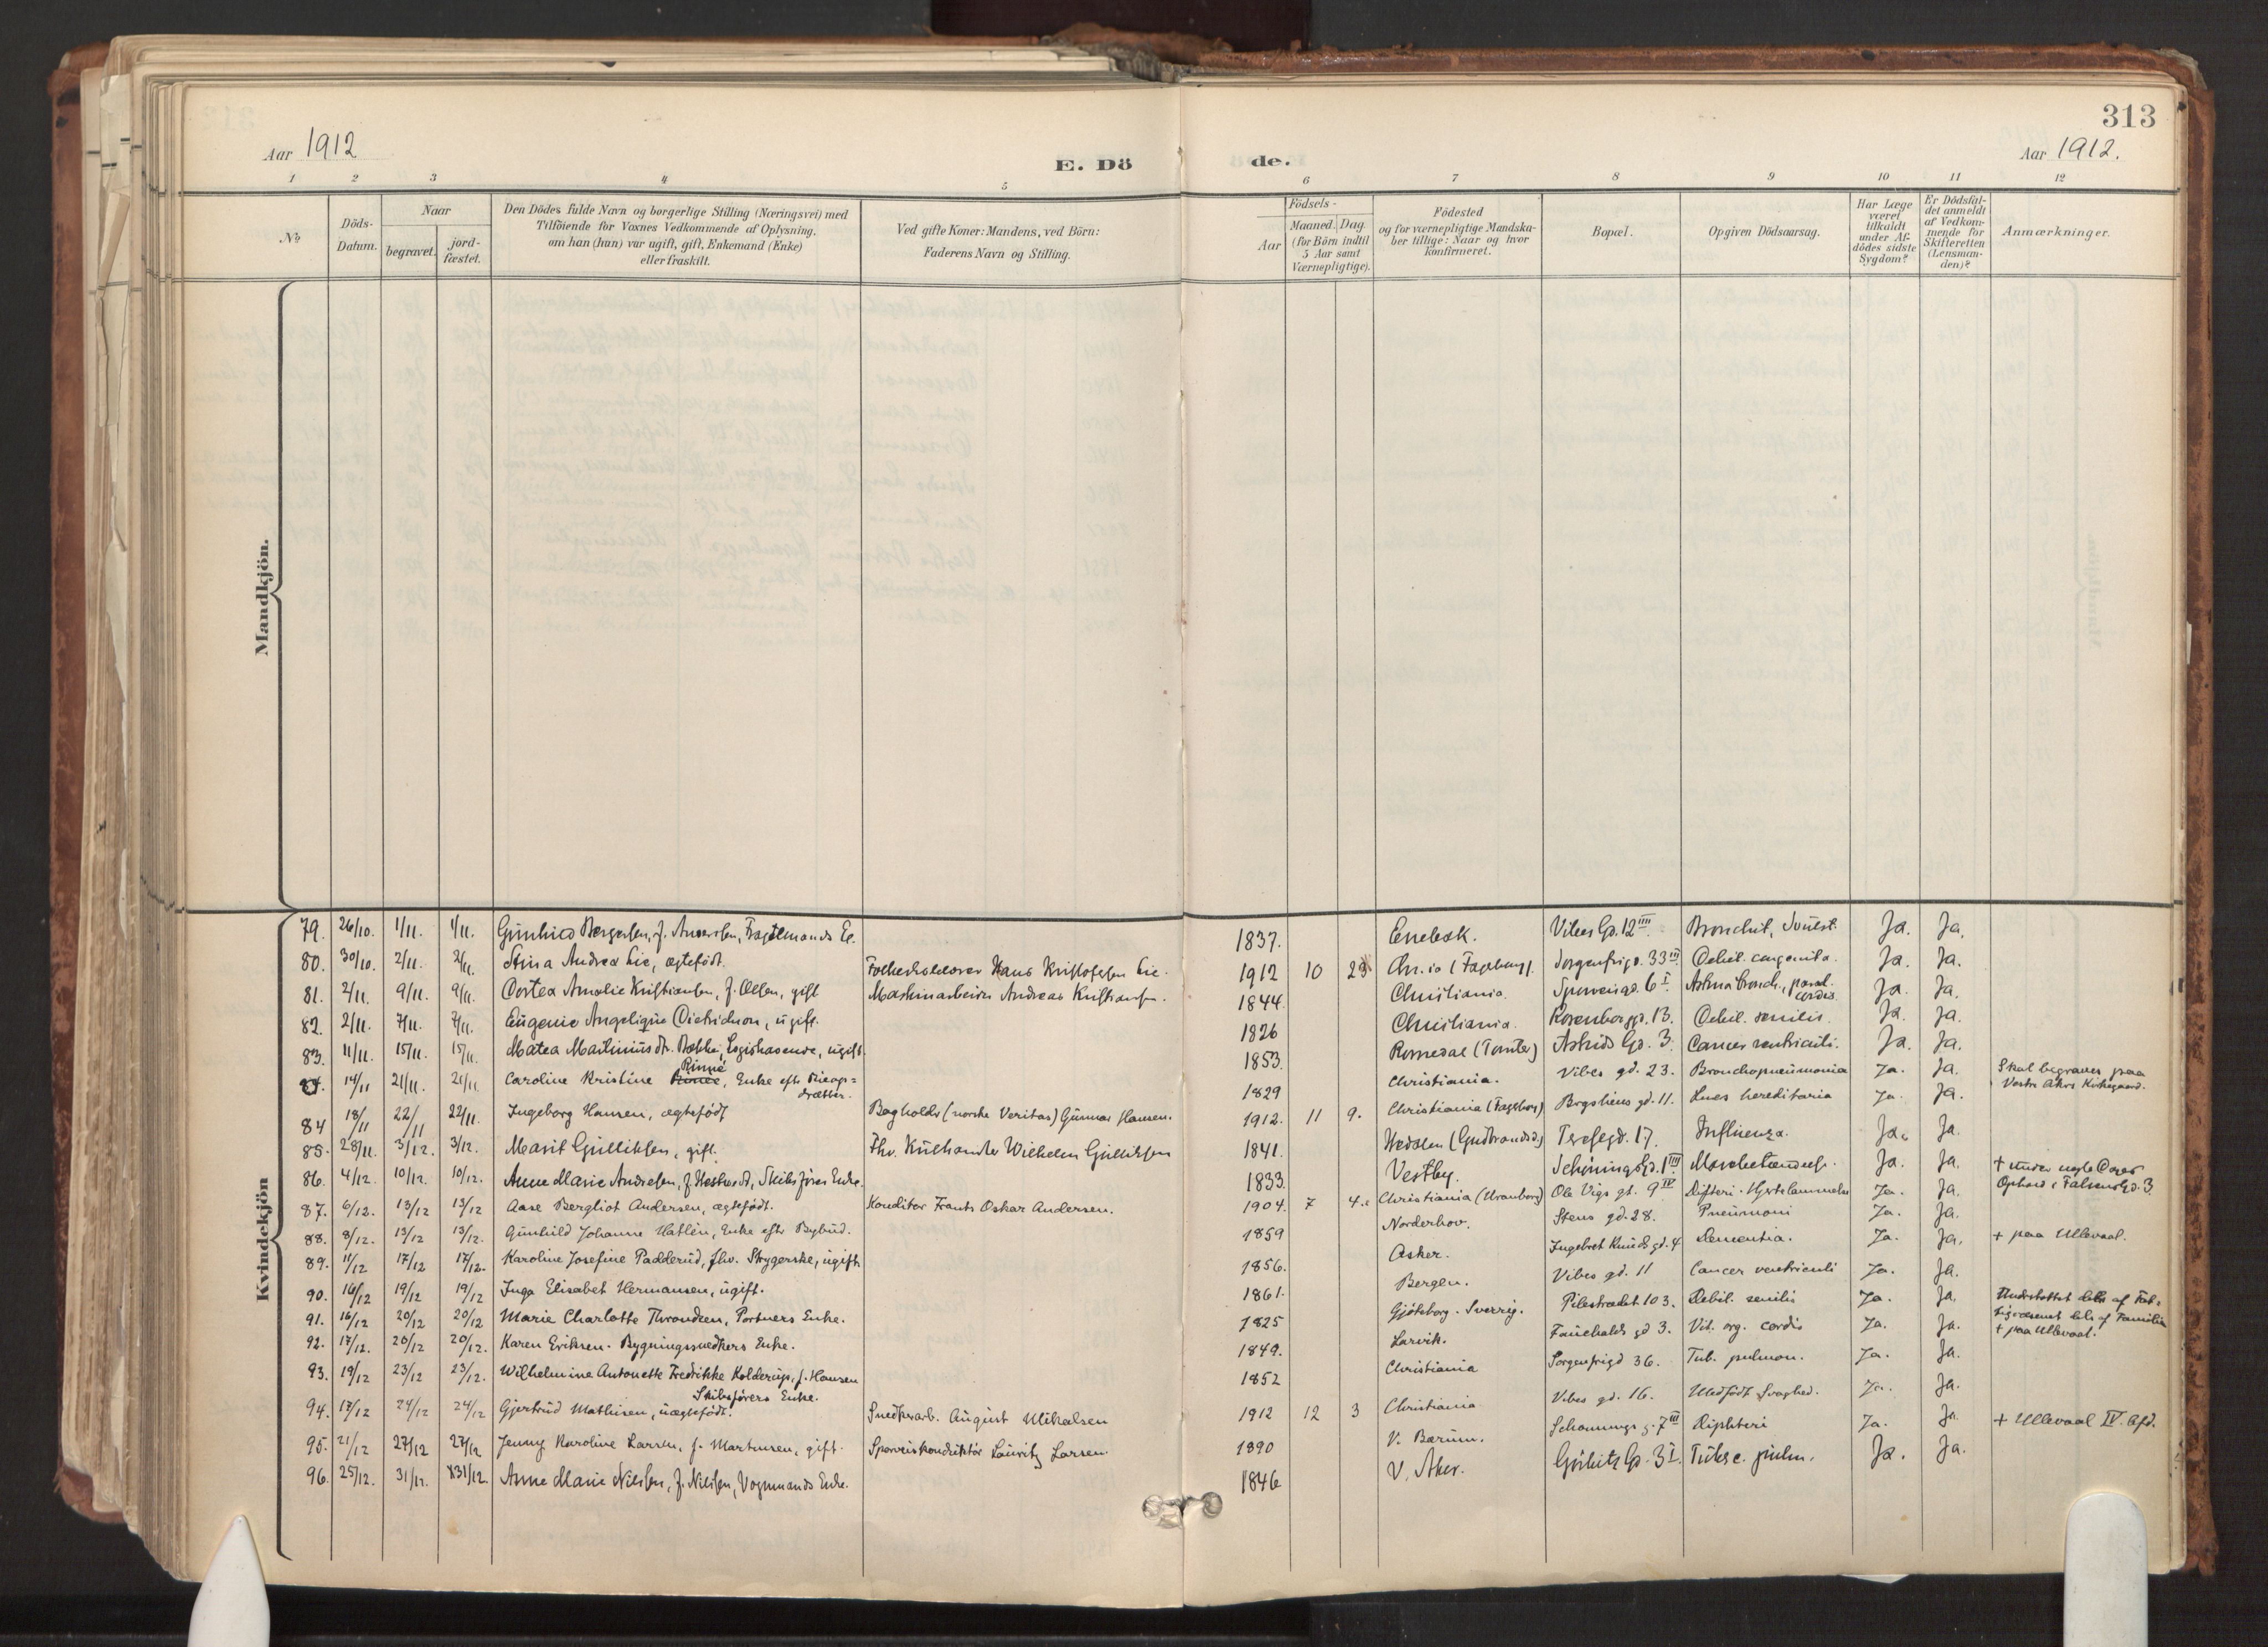 313
Aar 1912
E. Dö
de.
Aar 1912.
1 2 3 4 5 6 7 8 9 10 11 12
№
Döds-
Datum.
Naar
begravet.
jord-
fæstet.
Den Dödes fulde Navn og borgerlige Stilling (Næringsvei) med
Tilföiende for Voxnes Vedkommende af Oplysning.
om han (hun) var ugift, gift, Enkemand (Enke)
eller fraskilt.
Ved gifte Koner: Mandens, ved Börn:
Faderens Navn og Stilling.
Födsels-
Aar
Maaned. Dag.
(for Börn indtil
5 Aar samt
Værnepligtige).
Födested
og for værnepligtige Mandska-
ber tillige: Naar og hvor
konfirmeret.
Bopæl.
Opgiven Dödsaarsag.
Har Læge
været
tilkaldt
under Af-
dödes sidste
Sygdom?
Er Dödsfal-
det anmeldt
af Vedkom-
mende for
Skifteretten
(Lensman-
den)?
Anmærkninger.
Mandkjön.
Kvindekjön
79. 26/10. 1/11. 1/11. Bergersen, f. 1837. Enebak. Vibes Gd. 12 IIII Bronchit, Ja. Ja.
80. 30/10. 2/11. 2/11. Andrea Lie, ægtefödt. Hans Kristofersen Lie. 1912 10 Chr.ia (Fageborg). Sorgenfrigd. 33 III Debil. congenita. Ja. Ja.
81. 2/11. 9/11. 9/11. Dortea Amalie Kristiansen, f. Olsen, gift Maskinarbeider Andreas Kristiansen. 1844. Christiania. Sporveisgd. 6 I. Astma bronch., paral. cordis Ja. Ja.
82. 2/11. 7/11. 7/11. Eugenie Angelique Dietrichson, ugift. 1826 Christiania. Rosenborggd. 13. Debil. senilis. Ja. Ja.
83. 11/11. 15/11. 15/11. Matea Martiniusdtr. Bække, Logishavende, ugift. 1853. Romedal (Tomter) Astrids Gd. 3. Cancer ventriculi. Ja. Ja.
14/11 21/11. 21/11 Caroline Kristine Rinne, Enke efter 1829 Christiania. Vibes gd. 23. Bronchopneumonia Ja. Ja. Skal begraves paa
Vestre Akers Kirkegaard.
84 18/11 22/11 22/11. Ingeborg Hansen, ægtefödt Bogholder (norske Veritas) Gunnar Hansen. 1912. 11 9. Christiania (Fageborg) Bogstadveien gd. 11. Lues hereditaria Ja. Ja.
85. 28/11. 3/12. 3/12. Marit Gulliksen, gift. Fhv. Kulhandler Wilhelm Gulliksen 1841. Hedalen (Gudbrandsd.) Teresegd. 17. Influenza. Ja. Ja.
86. 4/12. 10/12. 10/12. Anne Marie Andresen, f. Skibsförers Enke. 1833. Vestby. Schöningsgd. 1 III Ja. Ja.
87. 6/12. 13/12 13/12 Aase Bergliot Andersen, ægtefödt. Konditor Frants Oskar Andersen. 1904. 7 4. Christiania (Uranienborg) Ole Vigs gt. 9 IV Difteri. Hjertelammelse Ja. Ja. + under
Ophold i Falsensgd. 3.
88. 8/12. 13/12 13/12. Gunhild Johanne Hatlén, Enke efter Bybud. 1859 Norderhov. Stens gd. 28. Pneumoni Ja. Ja.
89. 11/12 17/12 17/12. Karoline Josefine Padderud, fhv. Strygerske, ugift. 1856. Asker. Ingebret Knuds gd. 4 Dementia. Ja. Ja. + paa Ullevaal.
90. 16/12 19/12 19/12 Inga Elisabet Hermansen, ugift. 1861. Bergen. Vibes gd. 11 Cancer ventriculi Ja. Ja.
91. 16/12 20/12 20/12 Marie Charlotte Throndsen, Portners Enke. 1825 Gjöteborg. Sverrig. Pilestrædet 103. Debil. senilis Ja. Ja. Understöttet dels af Fat-
tigvæsenet dels af Familie
+ paa Ullevaal.
92. 17/12. 20/12 20/12. Karen Eriksen. Bygningssnedkers Enke. 1849. Larvik. Fauchalds gd 3. Vit. org. cordis Ja. Ja.
93. 19/12 23/12 23/12. Wilhelmine Antonette Fredrikke Kolderup, f. Hansen
Skibsförers Enke. 1852 Christiania Sorgenfrigd 36. Tub. pulmon. Ja. Ja.
94. 17/12 24/12 24/12 Gjertrud Mathisen, uægtefödt. Snedkerarb. August Mikalsen 1912 12 3 Christiania Vibes gd. 16. Medfödt Svaghed. Ja. Ja.
95. 21/12 27/12 27/12 Jenny Karoline Larsen, f. Martinsen, gift. Sporveiskonduktör Lauritz Larsen 1890 V. Bærum. Schönnings g. 7 III Diphteri Ja. Ja. + Ullevaal IV. Afd.
96. 25/12. 31/12. 31/12. Anne Marie Nilsen, f. Nilsen, Vognmands Enke. 1846 V. Aker. Görbitz Gd. 3 I. Tuberc. pulm. Ja. Ja.